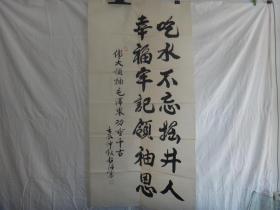 吃水不忘掘井人
幸福牢記領袖恩
偉大領袖毛澤東功垂千古